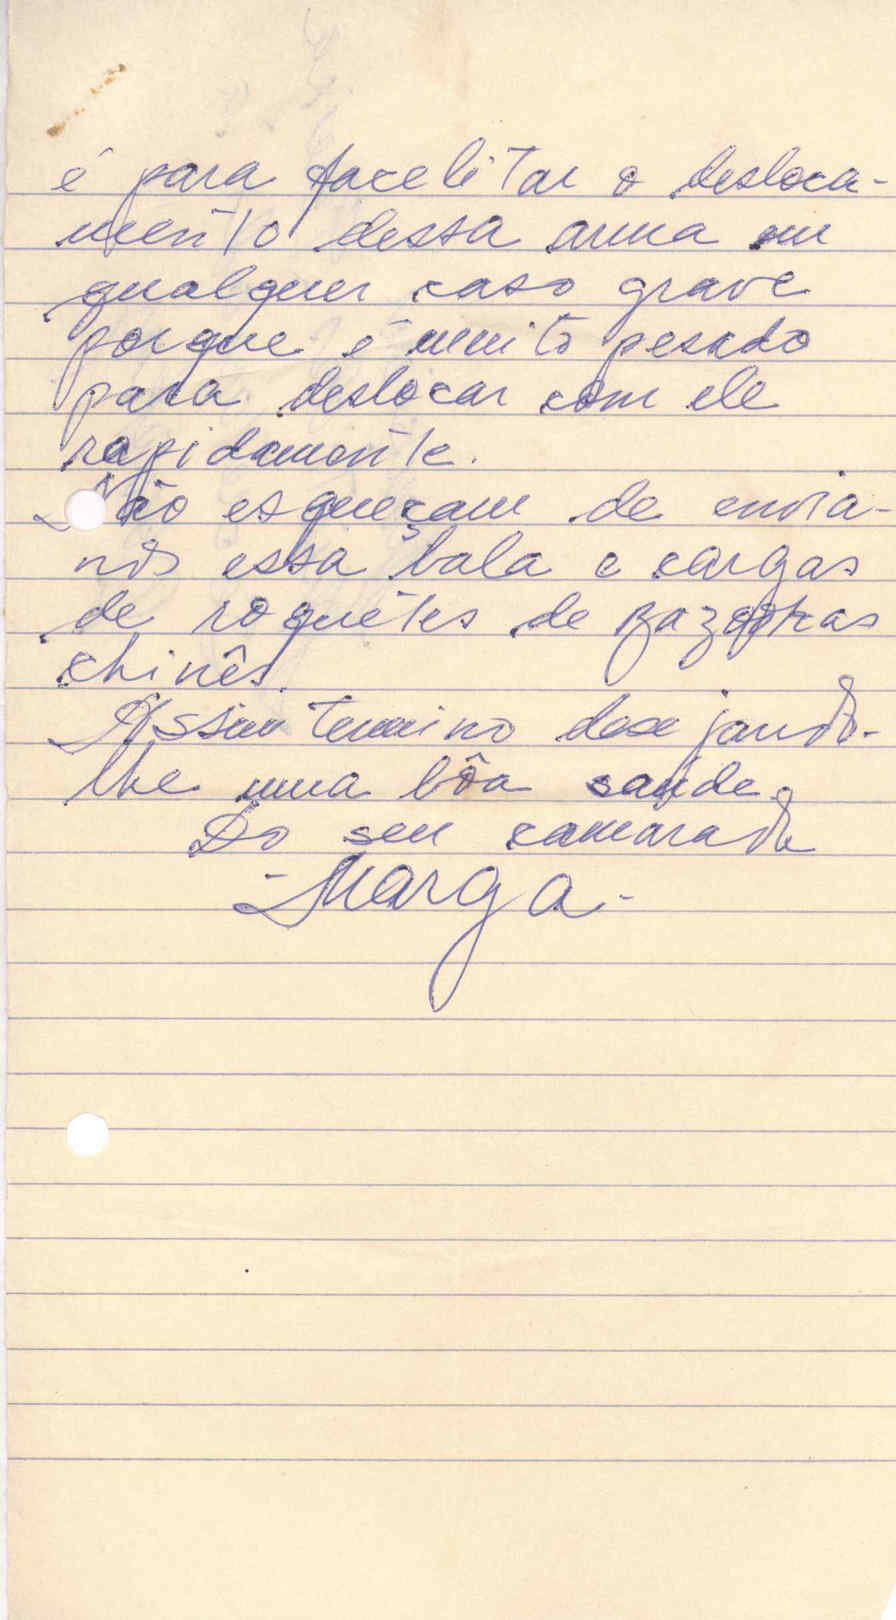 é para facelitar o desloca-
mento dessa arma em
qualquer caso grave
porque é muito pesado
para deslocar com ele
rapidamente.
Não esqueçam de envia-
nós essa bala e cargas
de roquétes de Bazookas
chinês.
Assim termino desejando-
lhe uma bôa saúde.
Do seu camarada
-Marga-